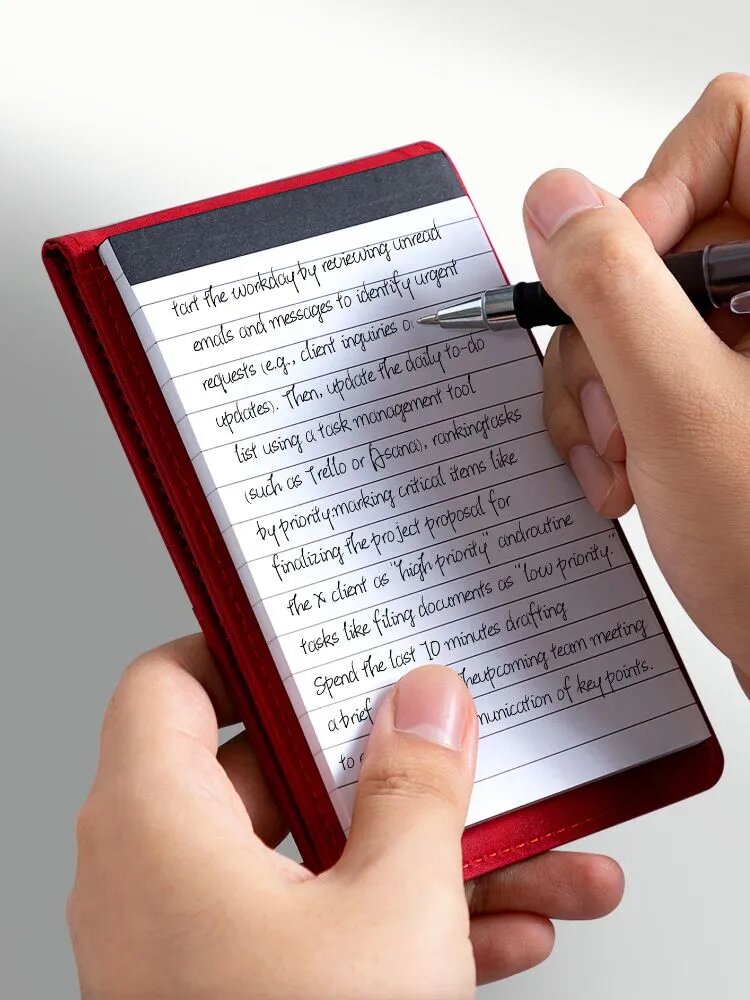 tart the workday by reviewing unread
emails and messages to identify urgent
requests (e.g., client inquiries o
updates). Then, update the daily to-do
list using a task management tool
(such as Trello or Asana), rankingtasks
by priority:marking critical items like
finalizing the project proposal for
the X client as "high priority" androutine
tasks like filing documents as "low priority."
Spend the last 10 minutes drafting
a brief heupcoming team meeting
to munication of key points.